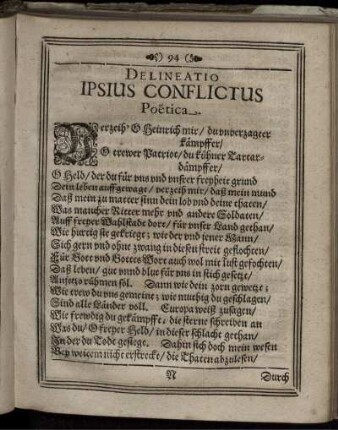 94
DELINEATIO
IPSIUS CONFLICTUS
Poëtica.
Verzeih O Heinrich mir / du vnverzagter
kämpffer /
O trewer Patriot / du kühner Tartar-
dämpffer /
O Held / der du für vns vnd vnsrer freyheit grund
Dein leben auffgewagt / verzeih mir / daß mein mund
Daß mein zu matter sinn dein lob vnd deine thaten /
Was mancher Ritter mehr vnd andre Soldaten /
Auff freyer Wahlstadt dort / für vnser Land gethan /
Wie hurtig sie gekriegt; wie der vnd jener Mann /
Sich gern vnd ohne zwang in diesen streit geflochten /
Für Gott vnd Gottes Wort auch wol mit lust gefochten /
Daß leben / gut vnnd blut für vns in stich gesetzt /
Anjetzo rühmen sol. Dann wie dein zorn gewetzt;
Wie trew du vns gemeint; wie muthig du geschlagen /
Sind alle Länder voll. Europa weiß zusagen /
Wie frewdig du gekämpfft; die sterne schreiben an
Was du / O freyer Held / in dieser schlacht gethan /
In der du Todt gesiegt. Dahin sich doch mein wesen
Bey weitem nicht erstreckt / die Thaten abzulesen /
N Durch